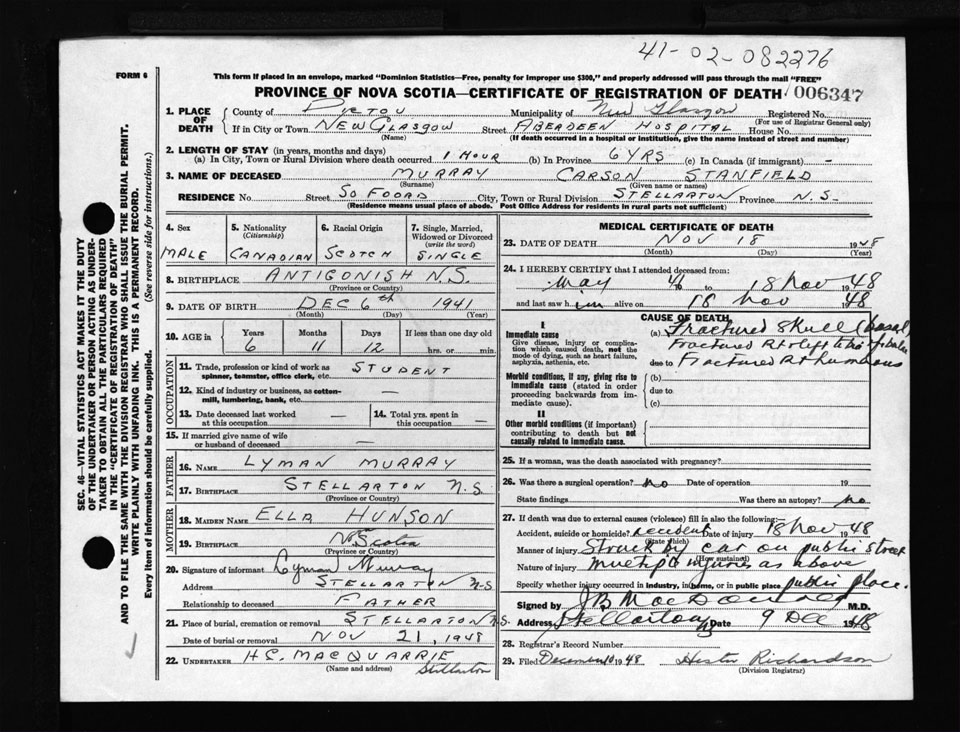 41-02-082276
FORM 6
This form if placed in an envelope, marked "Dominion Statistics—Free, penalty for improper use $300," and properly addressed will pass through the mail "FREE"
PROVINCE OF NOVA SCOTIA—CERTIFICATE OF REGISTRATION OF DEATH 006347
1. PLACE OF DEATH County of PICTOU Municipality of New Glasgow Registered No.
(For use of Registrar General only)
If in City or Town NEW GLASGOW Street ABERDEEN HOSPITAL House No.
(Name) (If death occurred in a hospital or institution, give the name instead of street and number)
2. LENGTH OF STAY (in years, months and days)
(a) In City, Town or Rural Division where death occurred 1 HOUR (b) In Province 6 YRS (c) In Canada (if immigrant) —
3. NAME OF DECEASED MURRAY CARSON STANFIELD
(Surname) (Given name or names)
RESIDENCE No. Street SO FOORD City, Town or Rural Division STELLARTON Province N.S.
(Residence means usual place of abode. Post Office Address for residents in rural parts not sufficient)
SEC. 46—VITAL STATISTICS ACT MAKES IT THE DUTY
OF THE UNDERTAKER OR PERSON ACTING AS UNDER-
TAKER TO OBTAIN ALL THE PARTICULARS REQUIRED
IN THE "CERTIFICATE OF REGISTRATION OF DEATH"
AND TO FILE THE SAME WITH THE DIVISION REGISTRAR WHO SHALL ISSUE THE BURIAL PERMIT.
WRITE PLAINLY WITH UNFADING INK. THIS IS A PERMANENT RECORD.
Every item of information should be carefully supplied. (See reverse side for instructions.)
4. Sex 5. Nationality (Citizenship) 6. Racial Origin 7. Single, Married, Widowed or Divorced (write the word)
MALE CANADIAN SCOTCH SINGLE
8. BIRTHPLACE ANTIGONISH N.S.
(Province or Country)
9. DATE OF BIRTH DEC 6th 1941
(Month) (Day) (Year)
10. AGE in Years Months Days If less than one day old
6 11 12 hrs. or min.
OCCUPATION
11. Trade, profession or kind of work as spinner, teamster, office clerk, etc. STUDENT
12. Kind of industry or business, as cotton-mill, lumbering, bank, etc. —
13. Date deceased last worked at this occupation — 14. Total yrs. spent in this occupation —
15. If married give name of wife or husband of deceased —
FATHER
16. NAME LYMAN MURRAY
17. BIRTHPLACE STELLARTON N.S.
(Province or Country)
MOTHER
18. MAIDEN NAME ELLA HUNSON
19. BIRTHPLACE Scotia
(Province or Country)
20. Signature of informant Lyman Murray
Address STELLARTON N.S.
Relationship to deceased FATHER
21. Place of burial, cremation or removal STELLARTON N.S.
Date of burial or removal NOV 21, 1948
22. UNDERTAKER H.C. MACQUARRIE Stellarton
(Name and address)
MEDICAL CERTIFICATE OF DEATH
23. DATE OF DEATH NOV 18 1948
(Month) (Day) (Year)
24. I HEREBY CERTIFY that I attended deceased from:
May 46 to 18 Nov 1948
and last saw him alive on 18 Nov 1948
CAUSE OF DEATH
I
Immediate cause
Give disease, injury or complication which caused death, not the mode of dying, such as heart failure, asphyxia, asthenia, etc.
(a) Fractured Skull (basal
Fractured Rt & left
due to Fractured Rt humerus
Morbid conditions, if any, giving rise to immediate cause (stated in order proceeding backwards from immediate cause).
(b)
due to
(c)
II
Other morbid conditions (if important) contributing to death but not causally related to immediate cause.
25. If a woman, was the death associated with pregnancy?
26. Was there a surgical operation? no Date of operation 19
State findings Was there an autopsy? no
27. If death was due to external causes (violence) fill in also the following:—
Accident, suicide or homicide? Accident Date of injury 18 Nov 1948
(State which)
Manner of injury Struck by car on public street
(How sustained)
Nature of injury multiple injuries as above
Specify whether injury occurred in industry, in home, or in public place public place.
Signed by J B MacDonald M.D.
Address Stellarton NS Date 9 Dec 1948
28. Registrar's Record Number
29. Filed December 10 1948 Hester Richardson
(Division Registrar)